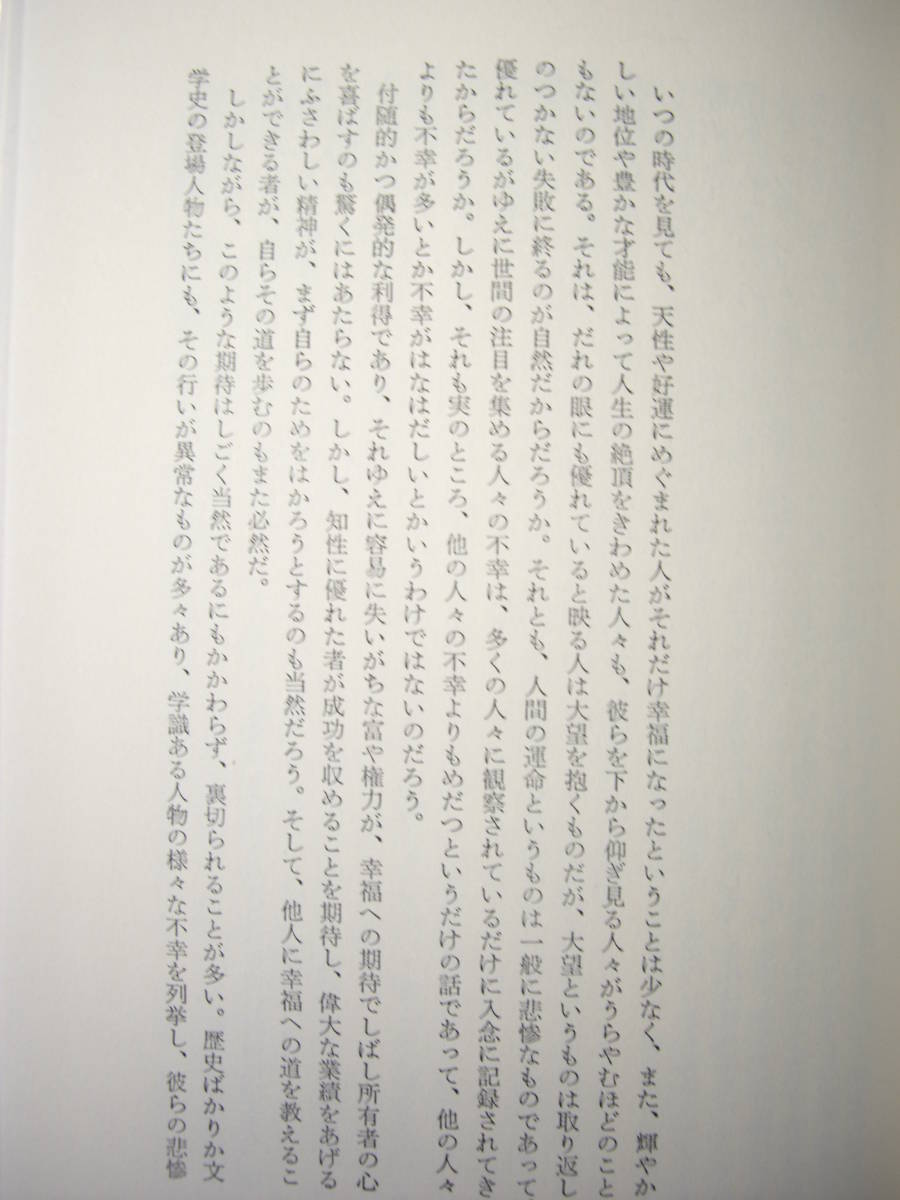 いつの時代を見ても、天性や好運にめぐまれた人がそれだけ幸福になったということは少なく、また、輝やか
しい地位や豊かな才能によって人生の絶頂をきわめた人々も、彼らを下から仰ぎ見る人々がうらやむほどのこと
もないのである。それは、だれの眼にも優れていると映る人は大望を抱くものだが、大望というものは取り返し
のつかない失敗に終るのが自然だからだろうか。それとも、人間の運命というものは一般に悲惨なものであって
優れているがゆえに世間の注目を集める人々の不幸は、多くの人々に観察されているだけに入念に記録されてき
たからだろうか。しかし、それも実のところ、他の人々の不幸よりもめだつというだけの話であって、他の人々
よりも不幸が多いとか不幸がはなはだしいとかいうわけではないのだろう。
付随的かつ偶発的な利得であり、それゆえに容易に失いがちな富や権力が、幸福への期待でしばし所有者の心
を喜ばすのも驚くにはあたらない。しかし、知性に優れた者が成功を収めることを期待し、偉大な業績をあげる
にふさわしい精神が、まず自らのためをはかろうとするのも当然だろう。そして、他人に幸福への道を教えるこ
とができる者が、自らその道を歩むのもまた必然だ。
しかしながら、このような期待はしごく当然であるにもかかわらず、裏切られることが多い。歴史ばかりか文
学史の登場人物たちにも、その行いが異常なものが多々あり、学識ある人物の様々な不幸を列挙し、彼らの悲惨